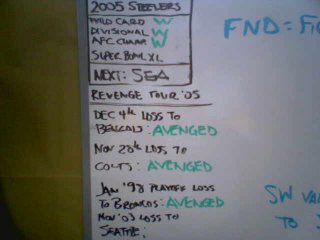 2005 STEELERS
WILD CARD W
DIVISIONAL W
AFC CHAMP W
SUPER BOWL XL
NEXT: SEA
REVENGE TOUR '05
DEC 4th LOSS TO
BENGALS: AVENGED
NOV 28th LOSS TO
COLTS: AVENGED
JAN '98 PLAYOFF LOSS
TO BRONCOS: AVENGED
NOV '03 LOSS TO
SEATTLE:
FND=
SW
TO